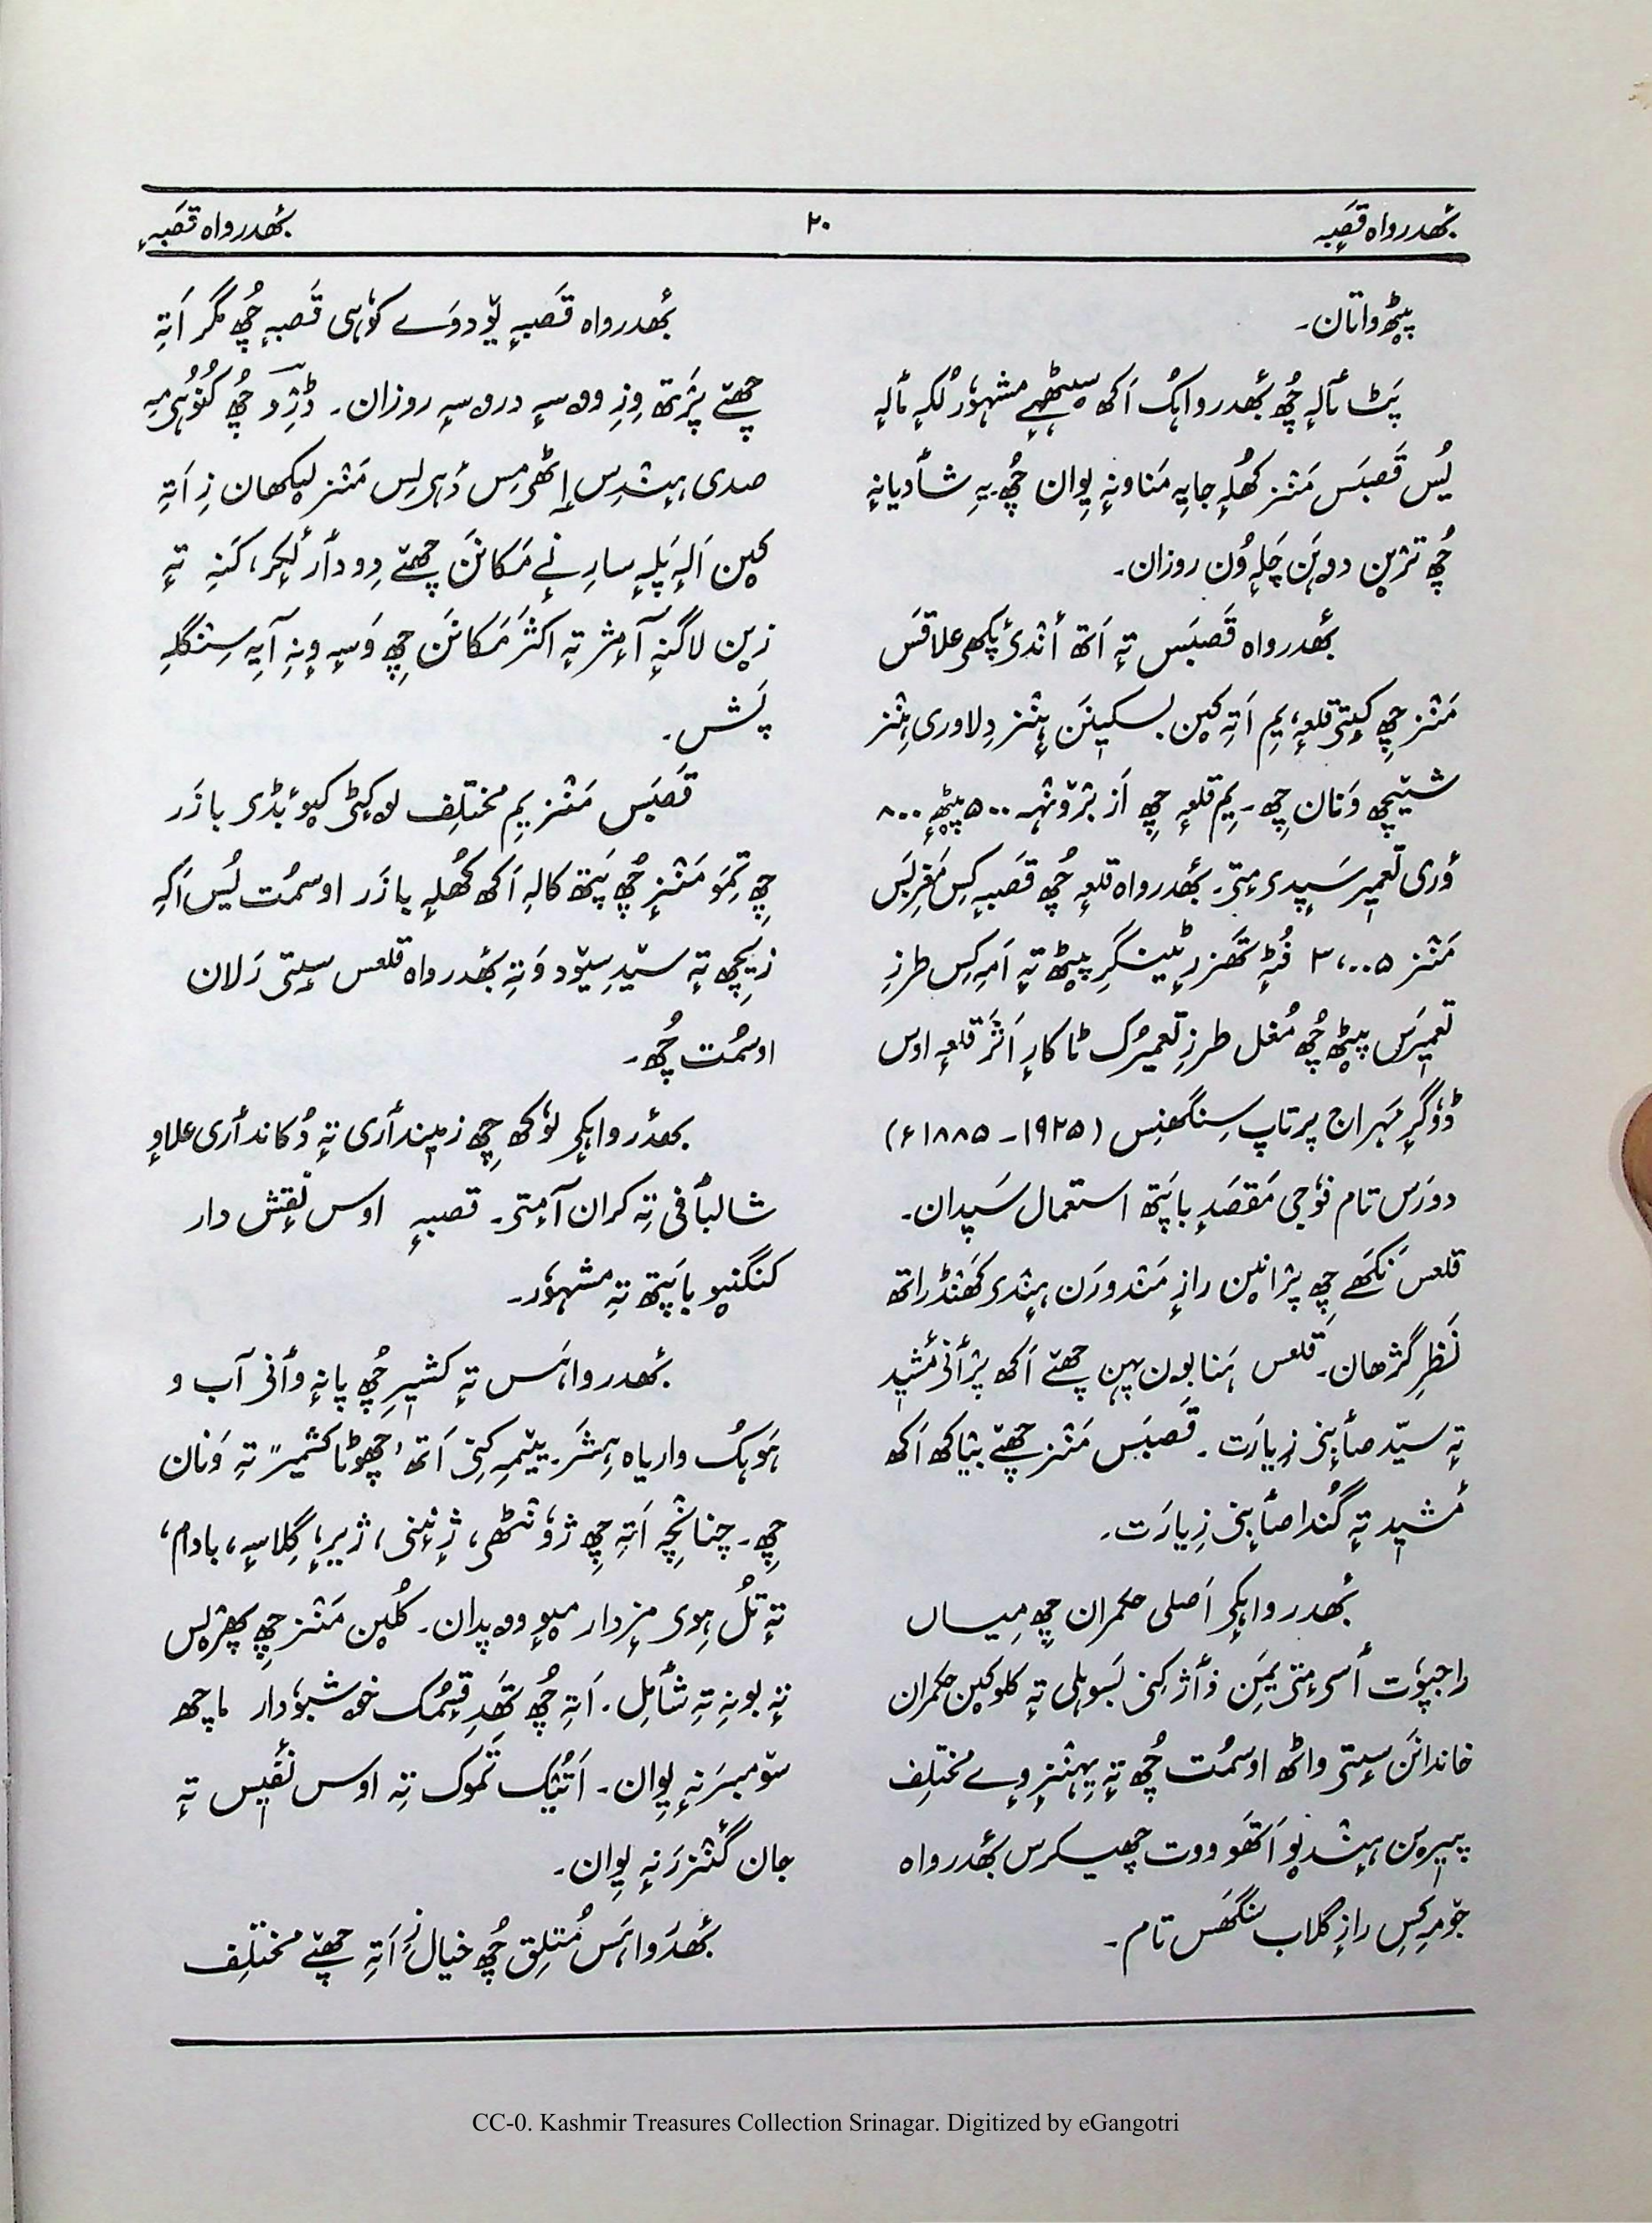 بھٔدرواہ قَصبہٕ
۲۰
بھٔدرواہ قَصبہٕ
پیٚٹھ واتان۔
پَٹ مٲلہٕ چُھ بھٔدرواہُک اَکھ سیٹھہے مشہوٗر لُکہٕ مٲلہٕ
یُس قَصبَس مَنٛز کُھلہٕ جایہِ مَناونہٕ یِوان چُھ۔ یہِ شٲدیانہٕ
چُھ ترٛین دوہَن چَلہٕ وُن روزان۔
بھٔدرواہ قَصبَس تہٕ اَتھ أندۍ پٔکھۍ علاقَس
مَنٛز چِھ کیٚتۍ قلعہٕ، یِم اَتہِ کین بسکینَن ہٕنٛز دِلاوری ہٕنٛز
شیٚچھ وَنان چِھ۔ یِم قلعہٕ چِھ اَز برٛونٛہہ ۵۰۰ پیٚٹھہٕ ۸۰۰
ؤری تعمیٖر سَپدیمٕتۍ۔ بھٔدرواہ قلعہٕ چُھ قَصبہٕ کِس مَغرِبَس
مَنٛز ۳،۰۰۵ فُٹہٕ تَھزر ٹینگرِ پیٚٹھ تہٕ اَمہِ کِس طرزِ
تعمیٖرَس پیٚٹھ چُھ مُغل طرزِ تعمیٖرُک ٹاکارٕ اَثَر قلعہٕ اوس
ڈوگرٕ مَہراج پرتاپ سِنگھنِس (۱۹۲۵ ـ ۱۸۸۵ء)
دورَس تام فوجی مَقصَدٕ باپَتھ استعمال سَپدان۔
قلعس نَکھے چِھ پرٛانین رازٕ مَنٛدورَن ہِندۍ کَھنٛڈراتھ
نَظرِ گژھان۔ قلعس ہَنا بۄن پہن چھےٚ اَکھ پرٛٲنۍ مٔشیٖد
تہٕ سیّد صٲبنۍ زِیارَت۔ قَصبَس مَنٛز چھےٚ بیٚاکھ اَکھ
مٔشیٖد تہٕ گُنڈا صٲبنۍ زِیارَت۔
بھٔدرواہکۍ اَصلی حکمران چِھ مِیاں
راجپوٗت ٲسۍمٕتۍ یِمَن وٲژ کِنۍ بَسوہلی تہٕ کلو کین حکمران
خاندانَن سٕتۍ واٹھ اوسمُت چُھ تہٕ یِہٕنٛزٕ وے مختلِف
پیٖرین ہٕنٛد یو اَتھَو ووت چھیکرس بھٔدرواہ
جۆمہِ کِس رازٕ گلاب سنگھس تام۔
بھٔدرواہ قَصبہٕ یۆدوَے کوٗہی قَصبہٕ چُھ مگر اَتہِ
چھےٚ پرٛتھ وِزِ ووسہٕ دروسہٕ روزان۔ ڈرٛیو چُھ کُنوُہِمہِ
صدی ہٕنٛدِس اِٹھمِس دٔہلِس مَنٛز لیکھان زِ اَتہِ
کین اَلہٕ پَلہٕ سارِنے مَکانَن چھےٚ دِودأر لُکر، کَنہِ تہٕ
زین لاگنہٕ آمٕژ تہٕ اکثر مَکانَن چِھ وَسہِ وٕنہِ آیہِ سِنگلہٕ
پَش۔
قَصبَس مَنٛز یِم مختلِف لۄکٹۍ کیو بٔڈۍ بازَر
چِھ تِمَو مَنٛزٕ چُھ پَتھ کالہِ اَکھ کُھلہٕ بازَر اوسمُت یُس اَکہِ
زیچھ تہٕ سیٚدِ سیٚود وَتہِ بھٔدرواہ قلعس سٕتۍ رَلان
اوسمُت چُھ۔
بھٔدرواہکۍ لوٗکھ چِھ زمیندٲری تہٕ دُکاندٲری علاوٕ
شالبٲفی تہِ کران آمٕتۍ۔ قصبہٕ اوس نقٕش دار
کنگنیو باپَتھ تہِ مشہوٗر۔
بھٔدرواہَس تہٕ کشیٖرِ چُھ پانہٕ وٲنۍ آب و
ہَوہُک واریاہ ہِشَر۔ یِتِمہِ کِنۍ اَتھ ’چھوٹا کشمیر“ تہِ وَنان
چِھ۔ چنانچہ اَتہِ چِھ ژوٗنٹھۍ، ژٕنٕنۍ، ژیرٕ، گِلاسہٕ، بادام،
تہٕ تُل ہِوۍ مزدار میوٕ ووپدان۔ کُلین مَنٛز چِھ پھرٛیس
تہٕ بونہِ تہِ شٲمِل۔ اَتہِ چُھ تَھدِ قِسمُک خۄشبوٗدار ماچھ
سۆمبرَنہٕ یِوان۔ اَتیُک تَموک تہِ اوس نٔفیٖس تہٕ
جان گَنٛزرَنہٕ یِوان۔
بھٔدرواہَس مُتلِق چُھ خیال زِ اَتہِ چھےٚ مختلِف
CC-0. Kashmir Treasures Collection Srinagar. Digitized by eGangotri